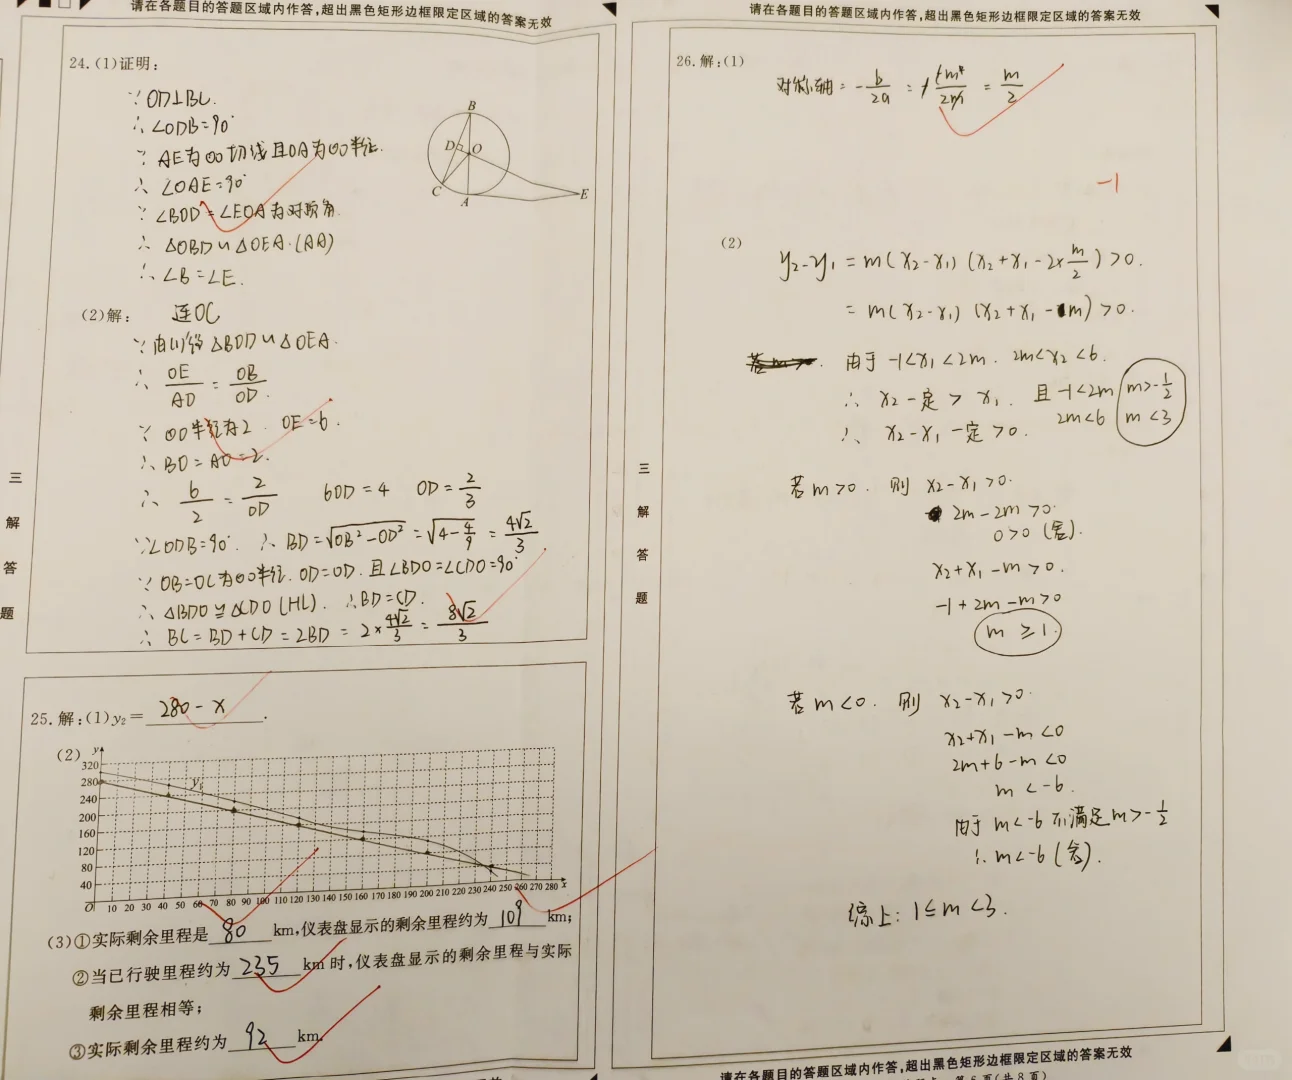 请在各题目的答题区域内作答,超出黑色矩形边框限定区域的答案无效
24.(1)证明:
∵OD⊥BC.
∴∠ODB=90°
∵AE为⊙O切线且OA为⊙O半径.
∴∠OAE=90°
∵∠BOD=∠EOA为对顶角.
∴△OBD∽△OEA.(AA)
∴∠B=∠E.
B
D
O
C
A
E
(2)解: 连OC
∵由(1)得△BOD∽△OEA.
∴ OE/AO = OB/OD.
∵⊙O半径为2. OE=6.
∴BO=AO=2.
∴ 6/2 = 2/OD 6OD=4 OD=2/3
∵∠ODB=90°. ∴BD=√(OB²-OD²)=√(4-4/9)=4√2/3
∵OB=OC为⊙O半径.OD=OD.且∠BDO=∠CDO=90°
∴△BDO≌△CDO(HL). ∴BD=CD.
∴BC=BD+CD=2BD=2×4√2/3=8√2/3
25.解:(1)y₂=280-x.
(2)
y
320
280
240
200
160
120
80
40
y₁
O 10 20 30 40 50 60 70 80 90 100 110 120 130 140 150 160 170 180 190 200 210 220 230 240 250 260 270 280 x
(3)①实际剩余里程是80km,仪表盘显示的剩余里程约为109km;
②当已行驶里程约为235km时,仪表盘显示的剩余里程与实际
剩余里程相等;
③实际剩余里程约为92km.
三
解
答
题
请在各题目的答题区域内作答,超出黑色矩形边框限定区域的答案无效
26.解:(1)
对称轴=-b/2a = m/2
-1
(2)
y₂-y₁=m(x₂-x₁)(x₂+x₁-2×m/2)>0.
=m(x₂-x₁)(x₂+x₁-m)>0.
由于-1<x₁<2m. 2m<x₂<6.
∴x₂一定>x₁. 且-1<2m m>-1/2
2m<6 m<3
∴x₂-x₁一定>0.
若m>0. 则 x₂-x₁>0.
2m-2m>0.
0>0(舍).
x₂+x₁-m>0.
-1+2m-m>0
m≥1.
若m<0. 则 x₂-x₁>0.
x₂+x₁-m<0
2m+6-m<0
m<-6.
由于m<-6不满足m>-1/2
∴m<-6(舍).
综上:1≤m<3.
三
解
答
题
请在各题目的答题区域内作答,超出黑色矩形边框限定区域的答案无效
第6页(共8页)